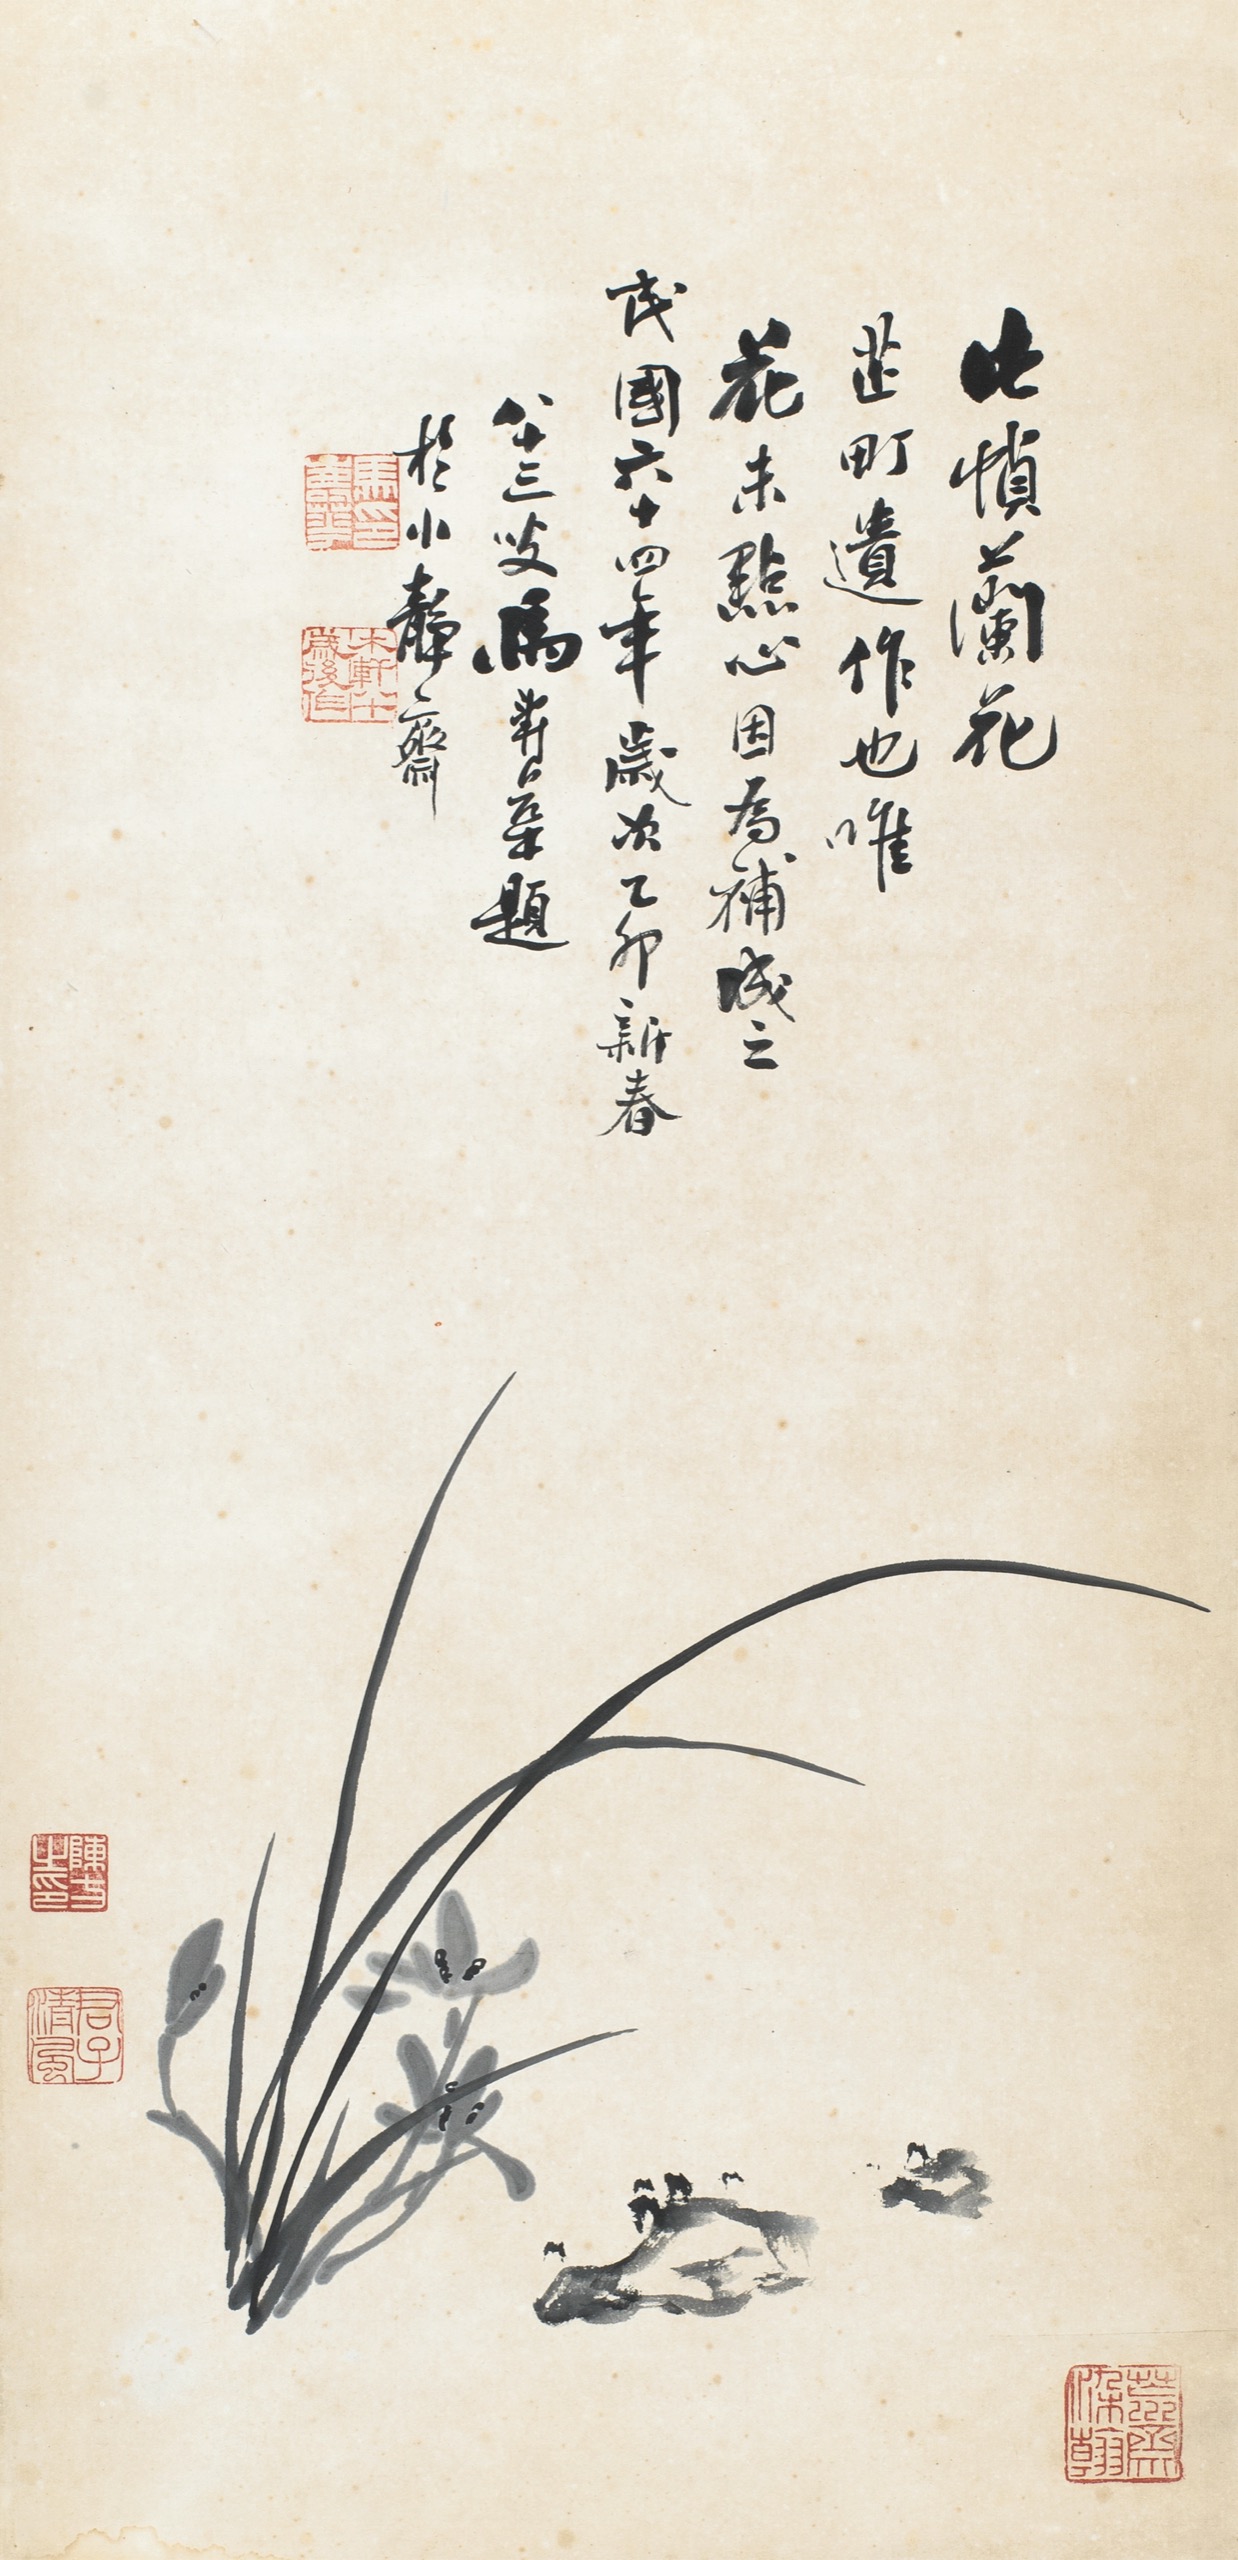 此幀蘭花
芷町遺作也唯
花未點心因為補成之
民國六十四年歲次乙卯新春
八十三叟馬壽華題
於小靜齋
馬壽華印
木軒七十歲後作
陳方之印
君子清風
染翰